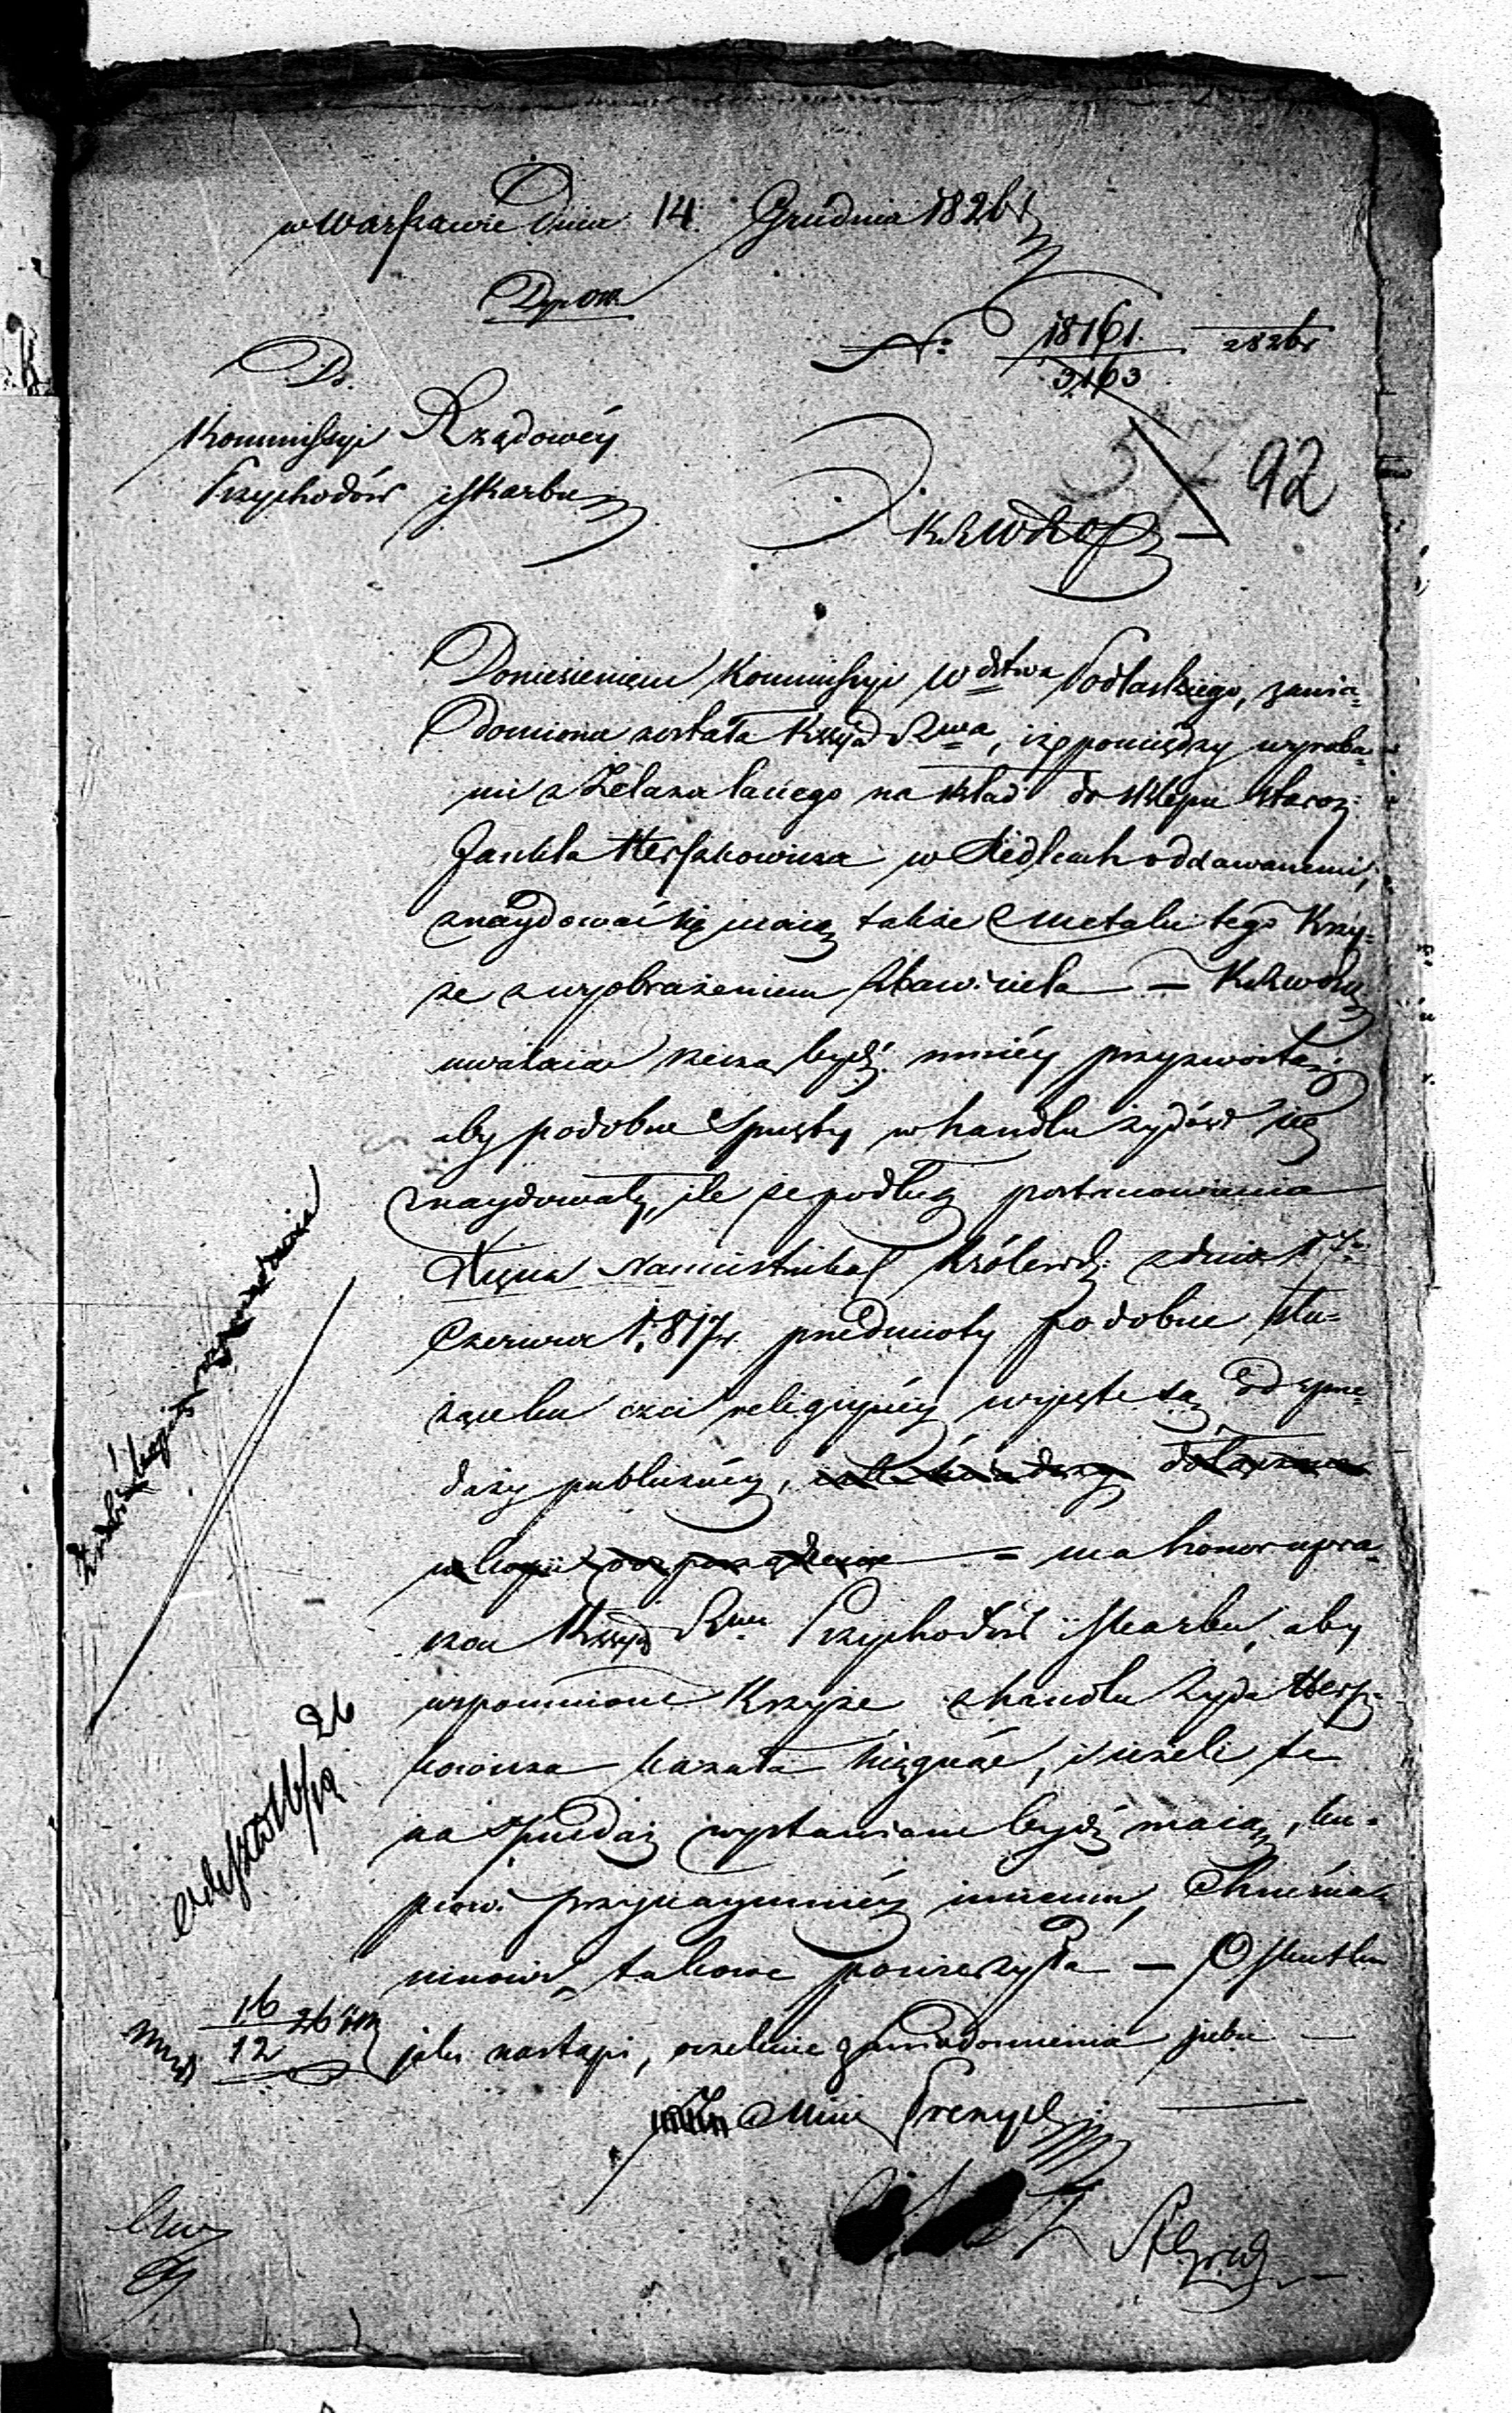 w Warszawie Dnia 14 Grudnia 1826 r
Do
Kommissyi Rządowéy
Przychodów i Skarbu
N. 18161. / 3163 1826 r
92
K.R.W.R.O.P.
Doniesieniem Kommissyi Wdztwa Podlaskiego, zawia-
domiona została Kssya Rwa, iż pomiędzy wyroba-
mi z Żelaza lanego na skład do sklepu staroz:
Jankla Herszkowicza w Siedlcach oddawanemi,
znaydować się maią także z metalu tego Krzy-
że z wyobrażeniem Zbawiciela — K.R.W.R.
uważaiąc rzeczą bydź mniéy przyzwoitą,
aby podobne sprzęty w handlu żydów się
znaydowały, ile że podług postanowienia
Xięcia Namiestnika Królewsk: z dnia 17.
Czerwca 1817 r. przedmioty podobne słu-
żące ku czci religiynéy wyięte są od sprze-
daży publicznéy, dołączone
w kopii rozporządzenie — ma honor upra-
szać Kssyą Rwą Przychodów i Skarbu, aby
wspomnione Krzyże z handlu żyda Hersz-
kowicza kazała ściągnąć, i ieżeli te
na sprzedaż wystawiane bydź maią, ku-
pcowi przynaymniéy innemu, Chrześcia-
ninowi, takowe powierzyła — O skutku
jaki nastąpi, oczekuie zawiadomienia
Mini Prezyd:
26
16 / 12 26